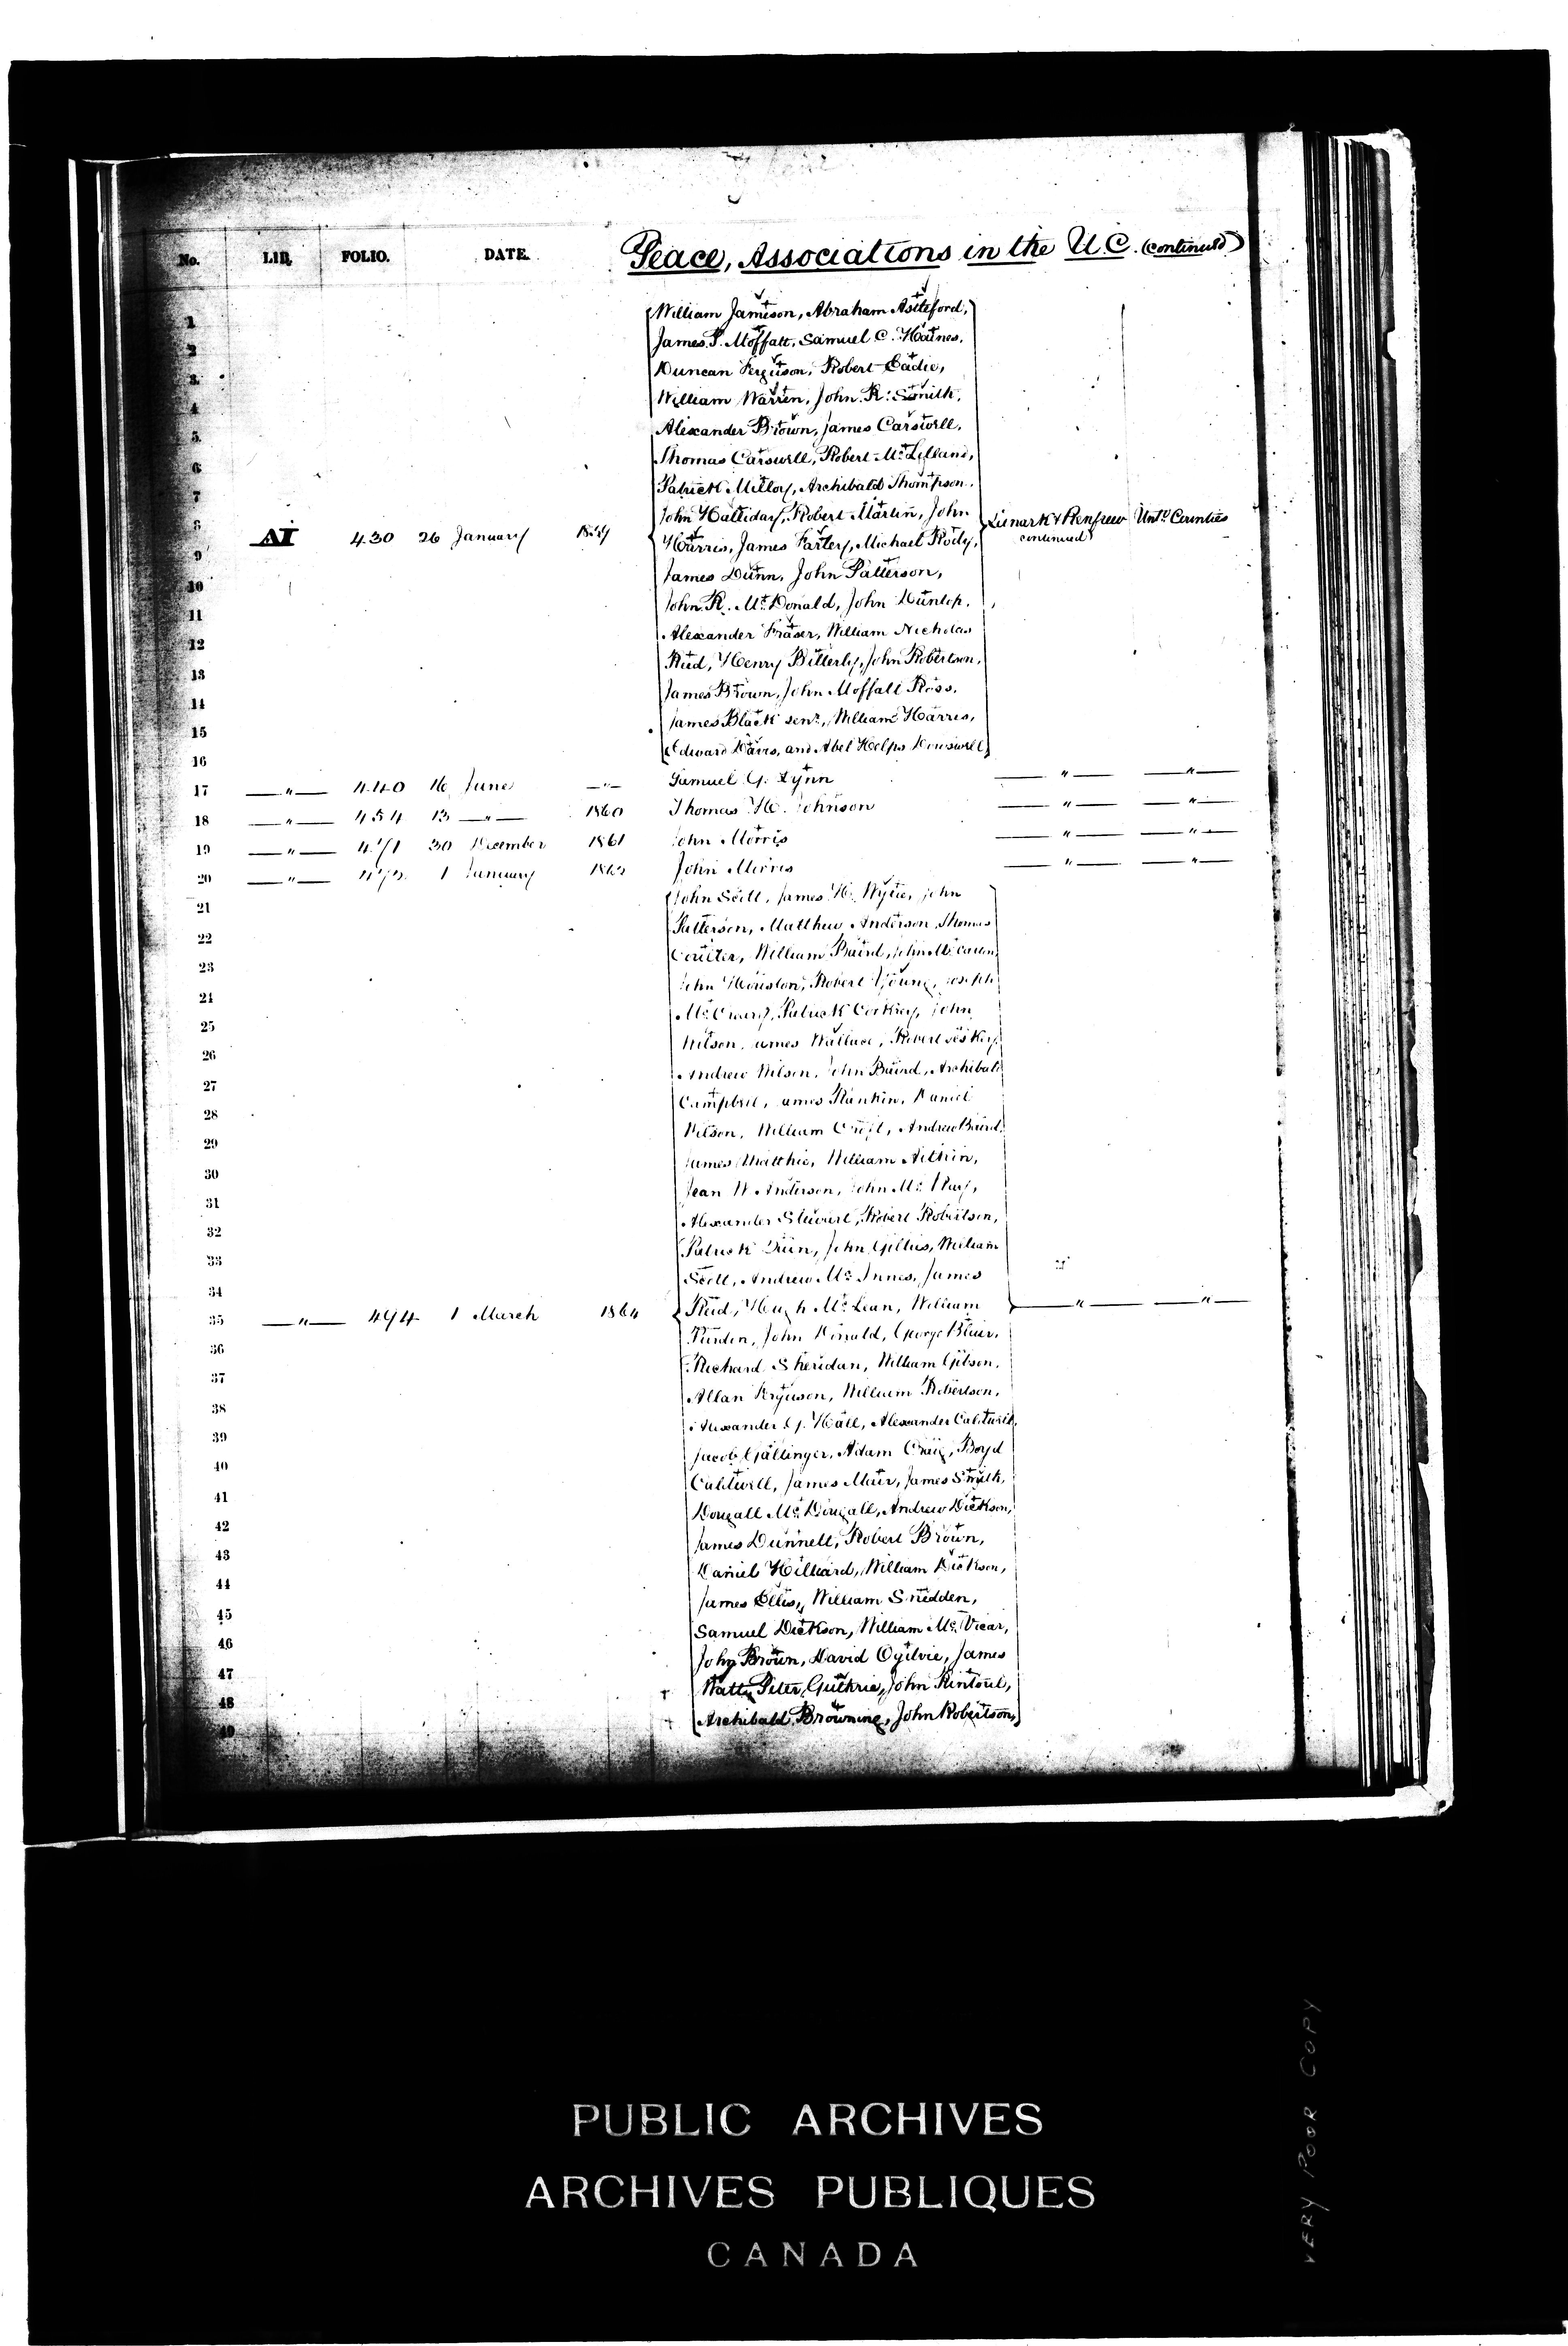 No. LIB. FOLIO. DATE. Peace, Associations in the U.C. (continued)
1 William Jamieson, Abraham
2 James P. Moffatt, Samuel C. Haines,
3 Duncan Ferguson, Robert Eadie,
4 William Warren, John R. Smith,
5 Alexander Brown, James Carswell,
6 Thomas Carswell, Robert McLelland,
7 Patrick Milloy, Archibald Thompson,
8 John Halliday, Robert Martin, John
AI 430 26 January Lanark & Renfrew Untd Counties
continued
9 Harris, James Fartey, Michael Rody,
10 James Dunn, John Patterson,
11 John R. McDonald, John Dunlop,
12 Alexander Fraser, William Nicholas
13 Reid, Henry Bitterly, John Robertson,
14 James Brown, John Moffatt Ross,
15 James Black senr, William Harris,
16 Edward Davis, and Abel Helps
17 —"— 440 16 June —"— Samuel G. Lynn —"— —"—
18 —"— 454 13 —"— 1860 Thomas H. Johnson —"— —"—
19 —"— 471 30 December 1861 John Morris —"— —"—
20 —"— 1 January John Morris —"— —"—
21 John Scott, James H. Wylie, John
22 Patterson, Matthew Anderson, Thomas
23 Coulter, William Baird, John
24 John Houston, Robert Young, Joseph
25 McCreary, Patrick Corkrey, John
26 Wilson, James Wallace, Robert
27 Andrew Wilson, John Baird, Archibald
28 Campbell, James Rankin, Daniel
29 Wilson, William Croft, Andrew Baird,
30 James Matthie, William Aitkin,
31 Jean W. Anderson, John
32 Alexander Stewart, Robert Robertson,
33 Patrick John Gillies, William
34 Scott, Andrew McInnes, James
35 —"— 494 1 March 1864 Reid, Hugh McLean, William —"— —"—
36 John Donald, George Blair,
37 Richard Sheridan, William Gibson,
38 Allan Ferguson, William Robertson,
39 Alexander G. Hall, Alexander Caldwell,
40 Jacob Gallinger, Adam Craig, Boyd
41 Caldwell, James Muir, James Smith,
42 Dougall McDougall, Andrew Dickson,
43 James Dunnett, Robert Brown,
44 Daniel Hilliard, William Dickson,
45 James Ellis, William Snedden,
46 Samuel Dickson, William McVicar,
47 John Brown, David Ogilvie, James
48 Watt, Peter Guthrie, John Rintoul,
49 Archibald Browning, John Robertson,
PUBLIC ARCHIVES
ARCHIVES PUBLIQUES
CANADA
VERY POOR COPY